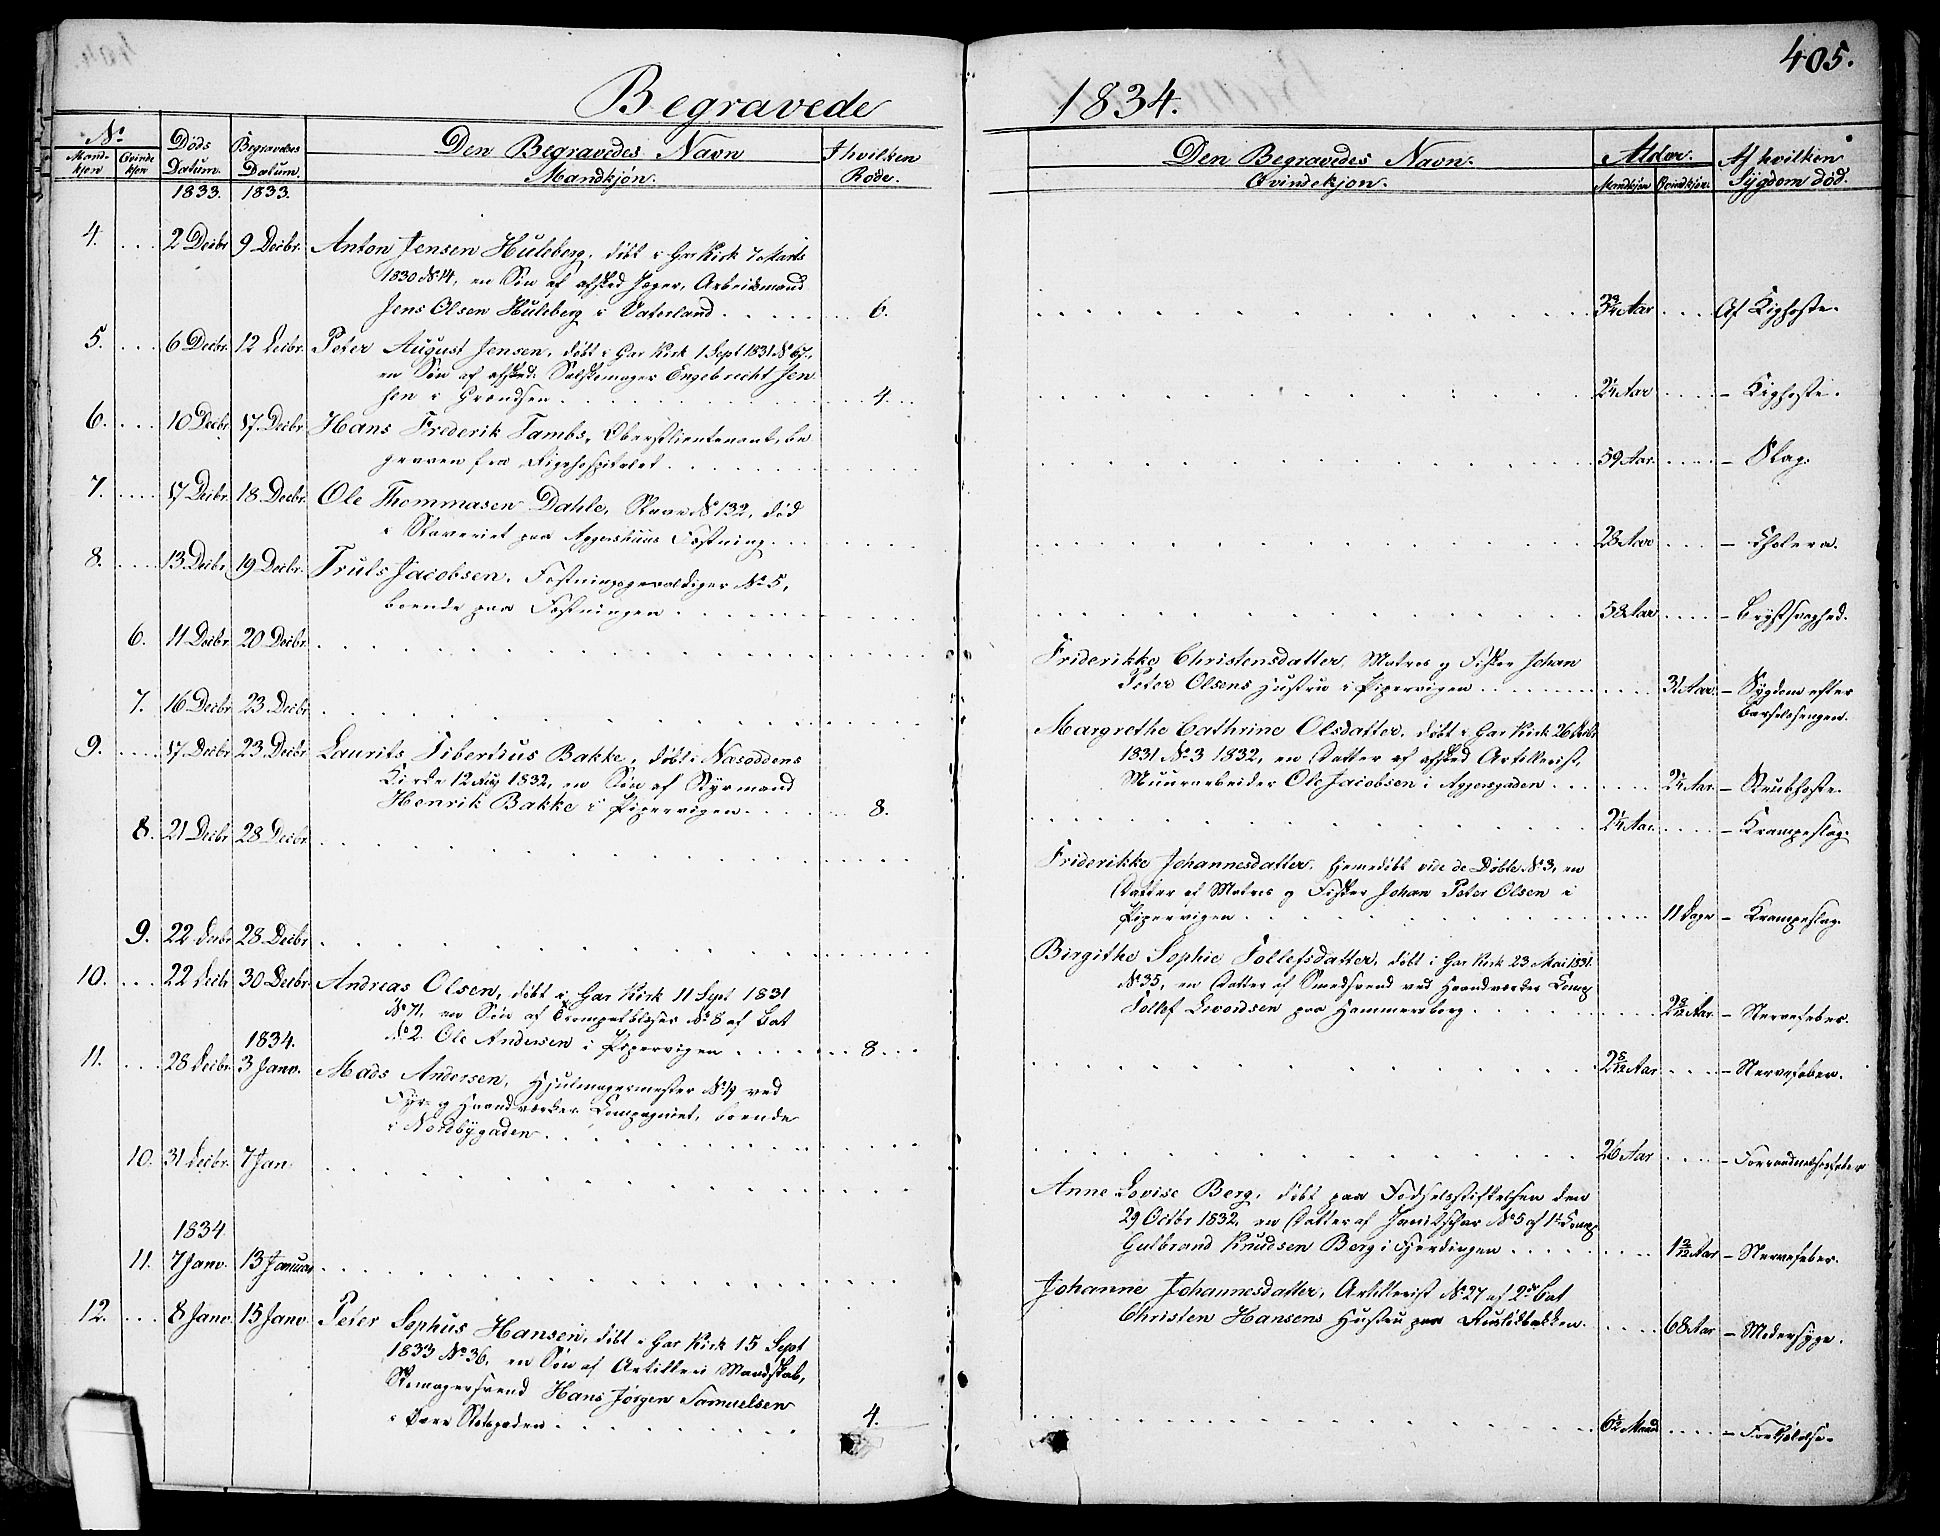 405.
Begravede
1834.
No
Mandkjön
Qvindekjön
Döds Datum.
Begravelses Datum.
Den Begravedes Navn
Mandkjön.
I hvilken Rode.
Den Begravedes Navn.
Qvindekjön.
Alder.
Mandkjön
Qvindkjön.
Af hvilken Sygdom död.
1833. 1833.
4. 2 Decbr 9 Decbr. Anton Jensen Huleberg, döbt i Gar Kirk 7 Marts
1830 No 14, en Sön af afsked Jæger, Arbeidsmand
Jens Olsen Huleberg i Vaterland 6. 3¾ Aar Af Kighoste.
5. 6 Decbr. 12 Decbr. Peter August Jensen, döbt i Gar Kirk 1 Sept 1831 No 67,
en Sön af afsked: Engebrecht Jen
sen i Grændsen 4. 2¼ Aar - Kighoste.
6. 10 Decbr. 17. Decbr. Hans Frederik Tambs, Oberstlieutenant, be
graven fra Rigshospitalet 59 Aar. - Slag.
7. 17 Decbr. 18 Decbr. Ole Thommasen Dahle, Slave No 132, död
i Slaveriet paa Aggershuus Fæstning. 28 Aar - Cholera.
8. 13 Decbr. 19 Decbr. Truls Jacobsen, Fæstningsgevaldiger No 5,
boende paa Fæstningen 58 Aar - Brystsvaghed.
6. 11 Decbr. 20 Decbr. Friderikke Christensdatter, Matros og Fisker Johan
Peter Olsens Hustru i Pipervigen 31 Aar. - Sygdom efter
Barselsengen.
7. 16 Decbr 23. Decbr. Margrethe Cathrine Olsdatter, döbt i Gar Kirk 26
1831 No 3 1832, en Datter af afsked Artillerist,
Muurarbeider Ole Jacobsen i Aggersgaden 2 Aar. - Strubhoste.
9. 17 Decbr. 23 Decbr Laurits Tiberthus Bakke, döbt i Næsoddens
Kirke 12 Aug 1832, en Sön af Styrmand
Henrik Bakke i Pipervigen 8. Aar. - Krampeslag.
8. 21 Decbr 28 Decbr. Friderikke Johannesdatter, hjemedöbt vide de Döbte No 3, en
Datter af Matros og Fisker Johan Peter Olsen i
Pipervigen 11 Dage - Krampeslag.
9. 22 Decbr 28 Decbr. Birgithe Sophie Tollefsdatter, döbt i Gar Kirk 23 Mai 1831
No 35, en Datter af Smedsvend ved Haandværker Comp
Tollef Levordsen paa Hammersborg Aar. - Nervefeber.
10. 22 Decbr 30 Decbr. Andreas Olsen, döbt i Gar Kirk 11 Sept 1831
No 71, en Sön af Trompetblæser No 8 af Bat
No 2. Ole Andersen i Pipervigen 8 Aar - Nervefeber.
1834.
11. 28 Decbr. 3 Janv. Mads Andersen, Hjulmagermester No 19 ved
Fyr- og Haandværker Compagniet, boende
i Nordbygaden 26 Aar - Forraadnelsesfeber
10. 31 Decbr. 7 Jan. Anne Lovise Berg, döbt paa Födselsstiftelsen den
29 Octbr 1832, en Datter af Janitschar No 5 af 1ste Comp
Gulbrand Knudsen Berg i Fjerdingen Aar - Nervefeber.
1834.
11. 7 Janv. 13 Januar Johanne Johannesdatter, Artillerist No 27 af 2den Bat
Christen Hansens Hustru paa Ruselökbakken. 68 Aar - Modersyge.
12. 8 Janv. 15 Janv Peter Sophus Hansen, döbt i Gar Kirk 15 Sept
1833 No 36, en Sön af Artilleri Mandskab,
Skomagersvend Hans Jörgen Samuelsen
i Övre Slotsgaden 4. Maand - Forkjölelse.